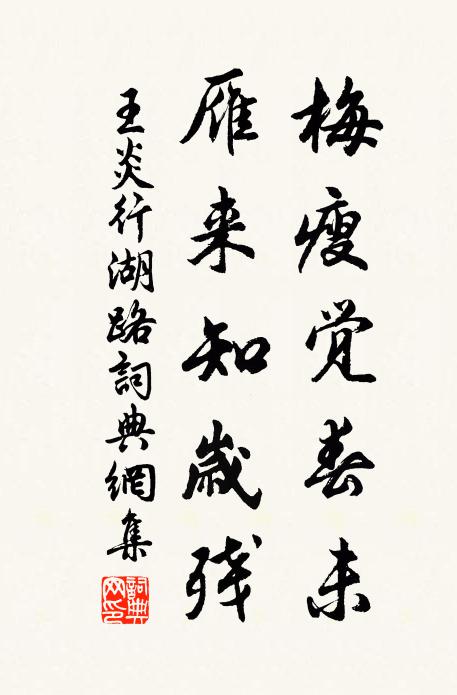 梅瘦觉春未
雁来知歲残
王炎行湖路詞典網集
詞典網印